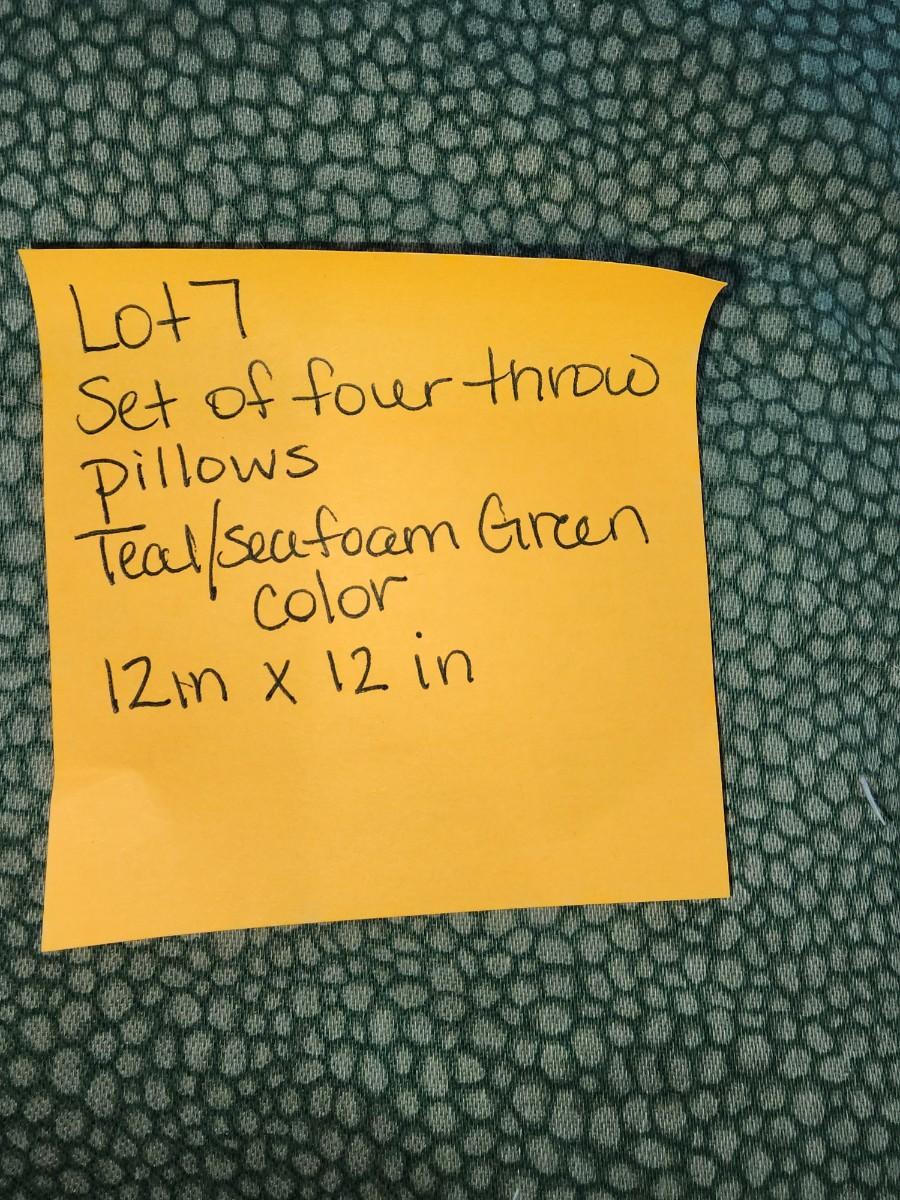 Lot 7
Set of four throw
pillows
Teal/seafoam Green
color
12in x 12 in